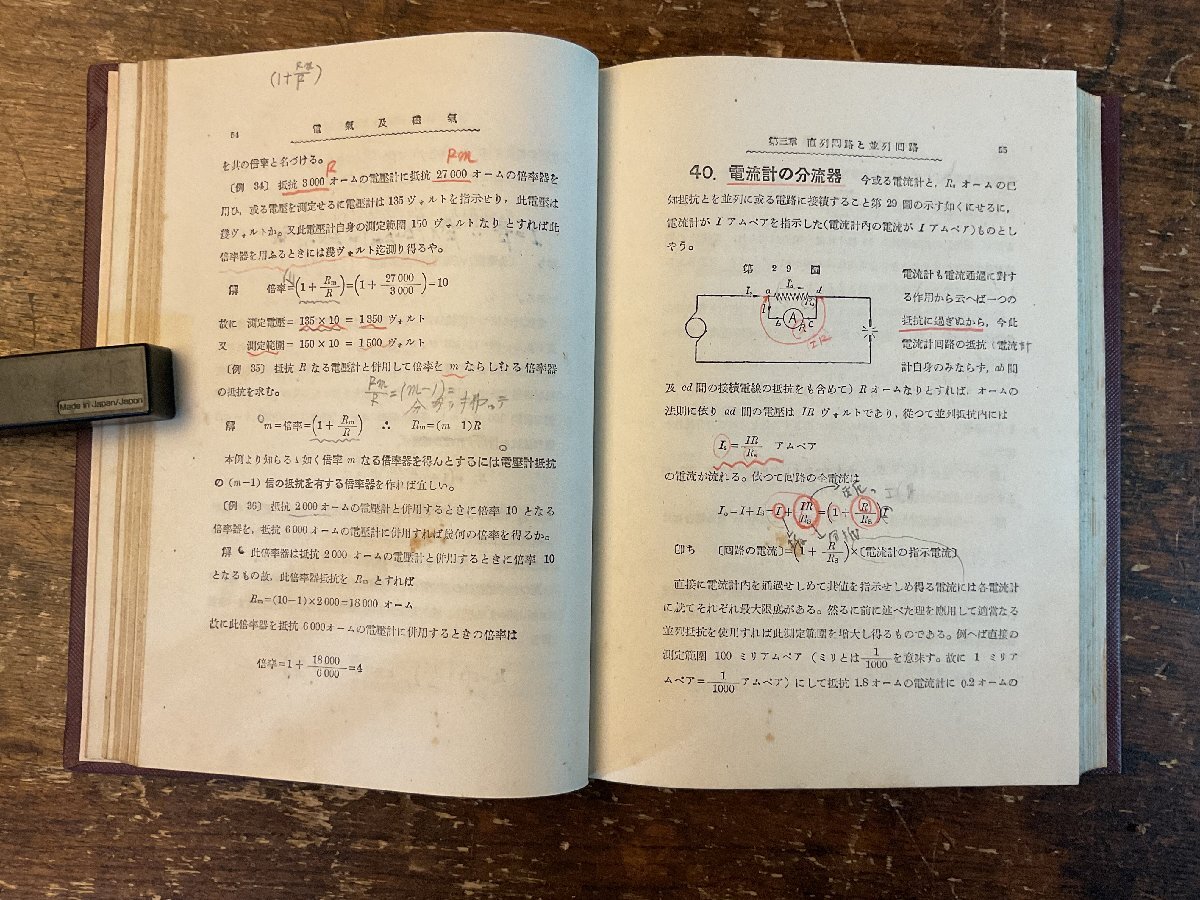 (1+Rm/R)
54 電氣及磁氣
を其の倍率と名づける。
Rm
〔例 34〕 抵抗 3 000 オームの電壓計に抵抗 27 000 オームの倍率器を
R
用ひ，或る電壓を測定せるに電壓計は 135 ヴォルトを指示せり，此電壓は
幾ヴォルトか。又此電壓計自身の測定範圍 150 ヴォルトなりとすれば此
倍率器を用ふるときには幾ヴォルト迄測り得るや。
解 倍率=(1+Rm/R)=(1+27 000/3 000)=10
故に 測定電壓= 135 × 10 = 1 350 ヴォルト
又 測定範圍= 150 × 10 = 1 500 ヴォルト
〔例 35〕 抵抗 R なる電壓計と併用して倍率を m ならしむる倍率器
の抵抗を求む。
Rm/R=(m-1)=
解 m=倍率=(1+Rm/R) ∴ Rm=(m-1)R
本例より知らるゝ如く倍率 m なる倍率器を得んとするには電壓計抵抗
の (m-1) 倍の抵抗を有する倍率器を作れば宜しい。
〔例 36〕 抵抗 2 000 オームの電壓計と併用するときに倍率 10 となる
倍率器を，抵抗 6 000 オームの電壓計に併用すれば幾何の倍率を得るか。
解 此倍率器は抵抗 2 000 オームの電壓計と併用するときに倍率 10
となるもの故，此倍率器抵抗を Rm とすれば
Rm=(10-1)×2 000=18 000 オーム
故に此倍率器を抵抗 6 000オームの電壓計に併用するときの倍率は
倍率=1+18 000/6 000=4
Made in Japan/Japon
第三章 直列回路と並列回路 55
40. 電流計の分流器 今或る電流計と，Rs オームの已
知抵抗とを並列に或る電路に接續すること第 29 圖の示す如くにせるに，
電流計が I アムペアを指示した(電流計内の電流が I アムペア)ものとし
やう。
第 29 圖
Io a Is d
I Rs
b A c
R
IR
電流計も電流通過に對す
る作用から云へば一つの
抵抗に過ぎぬから，今此
電流計回路の抵抗（電流計
計自身のみならず，ab 間
及 cd 間の接續電線の抵抗をも含めて）R オームなりとすれば，オームの
法則に依り ad 間の電壓は IR ヴォルトであり，從つて並列抵抗内には
Is=IR/Rs アムペア
の電流が流れる。依つて回路の全電流は
Io=I+Is=I+IR/Rs=(1+R/Rs)I
即ち 〔回路の電流〕=(1+R/Rs)×〔電流計の指示電流〕
直接に電流計内を通過せしめて其値を指示せしめ得る電流には各電流計
に就てそれぞれ最大限度がある。然るに前に述べた理を應用して適當なる
並列抵抗を使用すれば此測定範圍を增大し得るものである。例へば直接の
測定範圍 100 ミリアムペア（ミリとは 1/1000 を意味す。故に 1 ミリア
ムペア=1/1000 アムペア）にして抵抗 1.8 オームの電流計に 0.2 オームの